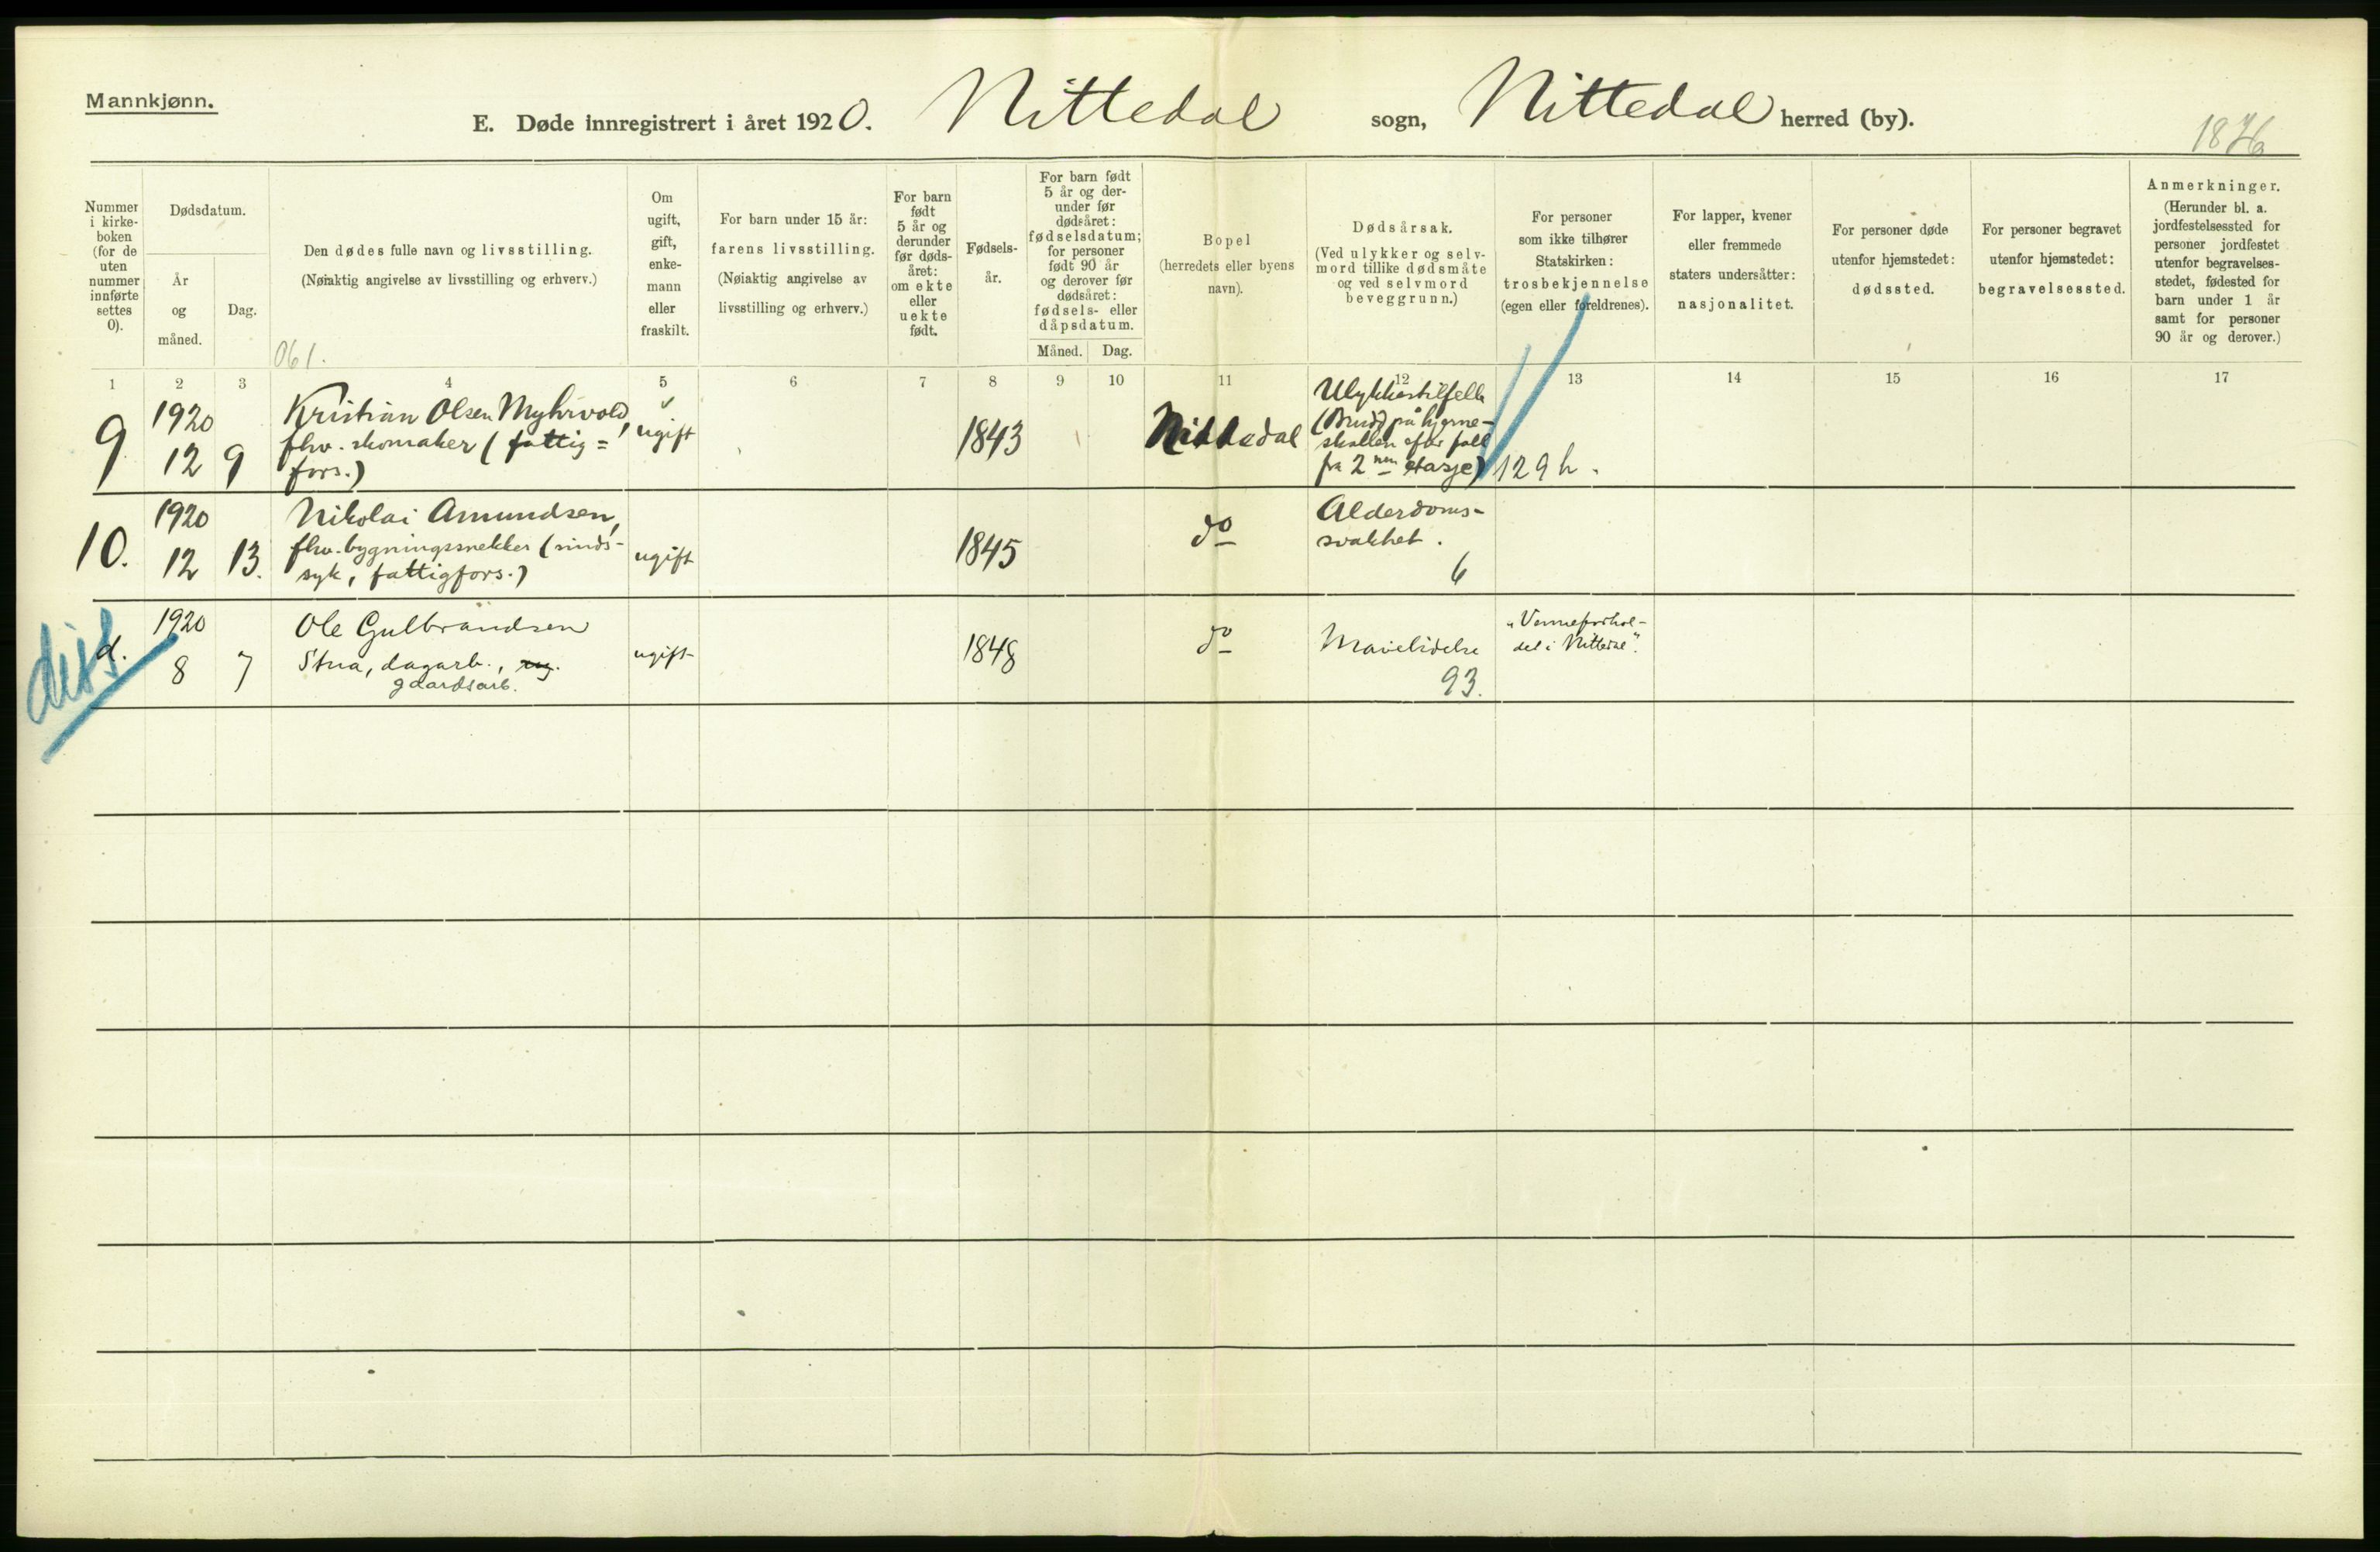 Mannkjønn.
E. Døde innregistrert i året 1920. Nittedal sogn, Nittedal herred (by).
1876
Nummer
i kirke-
boken
(for de
uten
nummer
innførte
settes
0).
Dødsdatum.
År
og
måned.
Dag.
Den dødes fulle navn og livsstilling.
(Nøiaktig angivelse av livsstilling og erhverv.)
061.
Om
ugift,
gift,
enke-
mann
eller
fraskilt.
For barn under 15 år:
farens livsstilling.
(Nøiaktig angivelse av
livsstilling og erhverv.)
For barn
født
5 år og
derunder
før døds-
året:
om ekte
eller
uekte
født.
Fødsels-
år.
For barn født
5 år og der-
under før
dødsåret:
fødselsdatum;
for personer
født 90 år
og derover før
dødsåret:
fødsels- eller
dåpsdatum.
Måned. Dag.
Bopel
(herredets eller byens
navn).
Dødsårsak.
(Ved ulykker og selv-
mord tillike dødsmåte
og ved selvmord
beveggrunn.)
For personer
som ikke tilhører
Statskirken:
trosbekjennelse
(egen eller foreldrenes).
For lapper, kvener
eller fremmede
staters undersåtter:
nasjonalitet.
For personer døde
utenfor hjemstedet:
dødssted.
For personer begravet
utenfor hjemstedet:
begravelsessted.
Anmerkninger.
(Herunder bl. a.
jordfestelsessted for
personer jordfestet
utenfor begravelses-
stedet, fødested for
barn under 1 år
samt for personer
90 år og derover.)
1 2 3 4 5 6 7 8 9 10 11 12 13 14 15 16 17
9
1920
12 9
Kristian Olsen Myhrvold,
fhv. skomaker (fattig=
fors.)
ugift
1843
Nittedal
Ulykkestilfelle
(Brudd på hjerne-
skallen efter fall
fra 2nen etasje)
129 h.
10.
1920
12 13.
Nikolai Amundsen,
fhv. bygningssnekker (sinds-
syk, fattigfors.)
ugift
1845
do
Alderdoms-
svakhet.
6
diss
d.
1920
8 7
Ole Gulbrandsen
Stua, dagarb.,
gaardsarb.
ugift
1848
do
Mavelidelse
93.
"Venneforhol-
det i Nittedal".